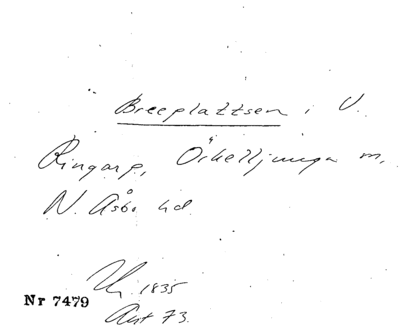 Breeplattsen i V.
Ringarp, Örkelljunga m,
N. Åsbo hd
1835
Nr 7479
Avt 73.